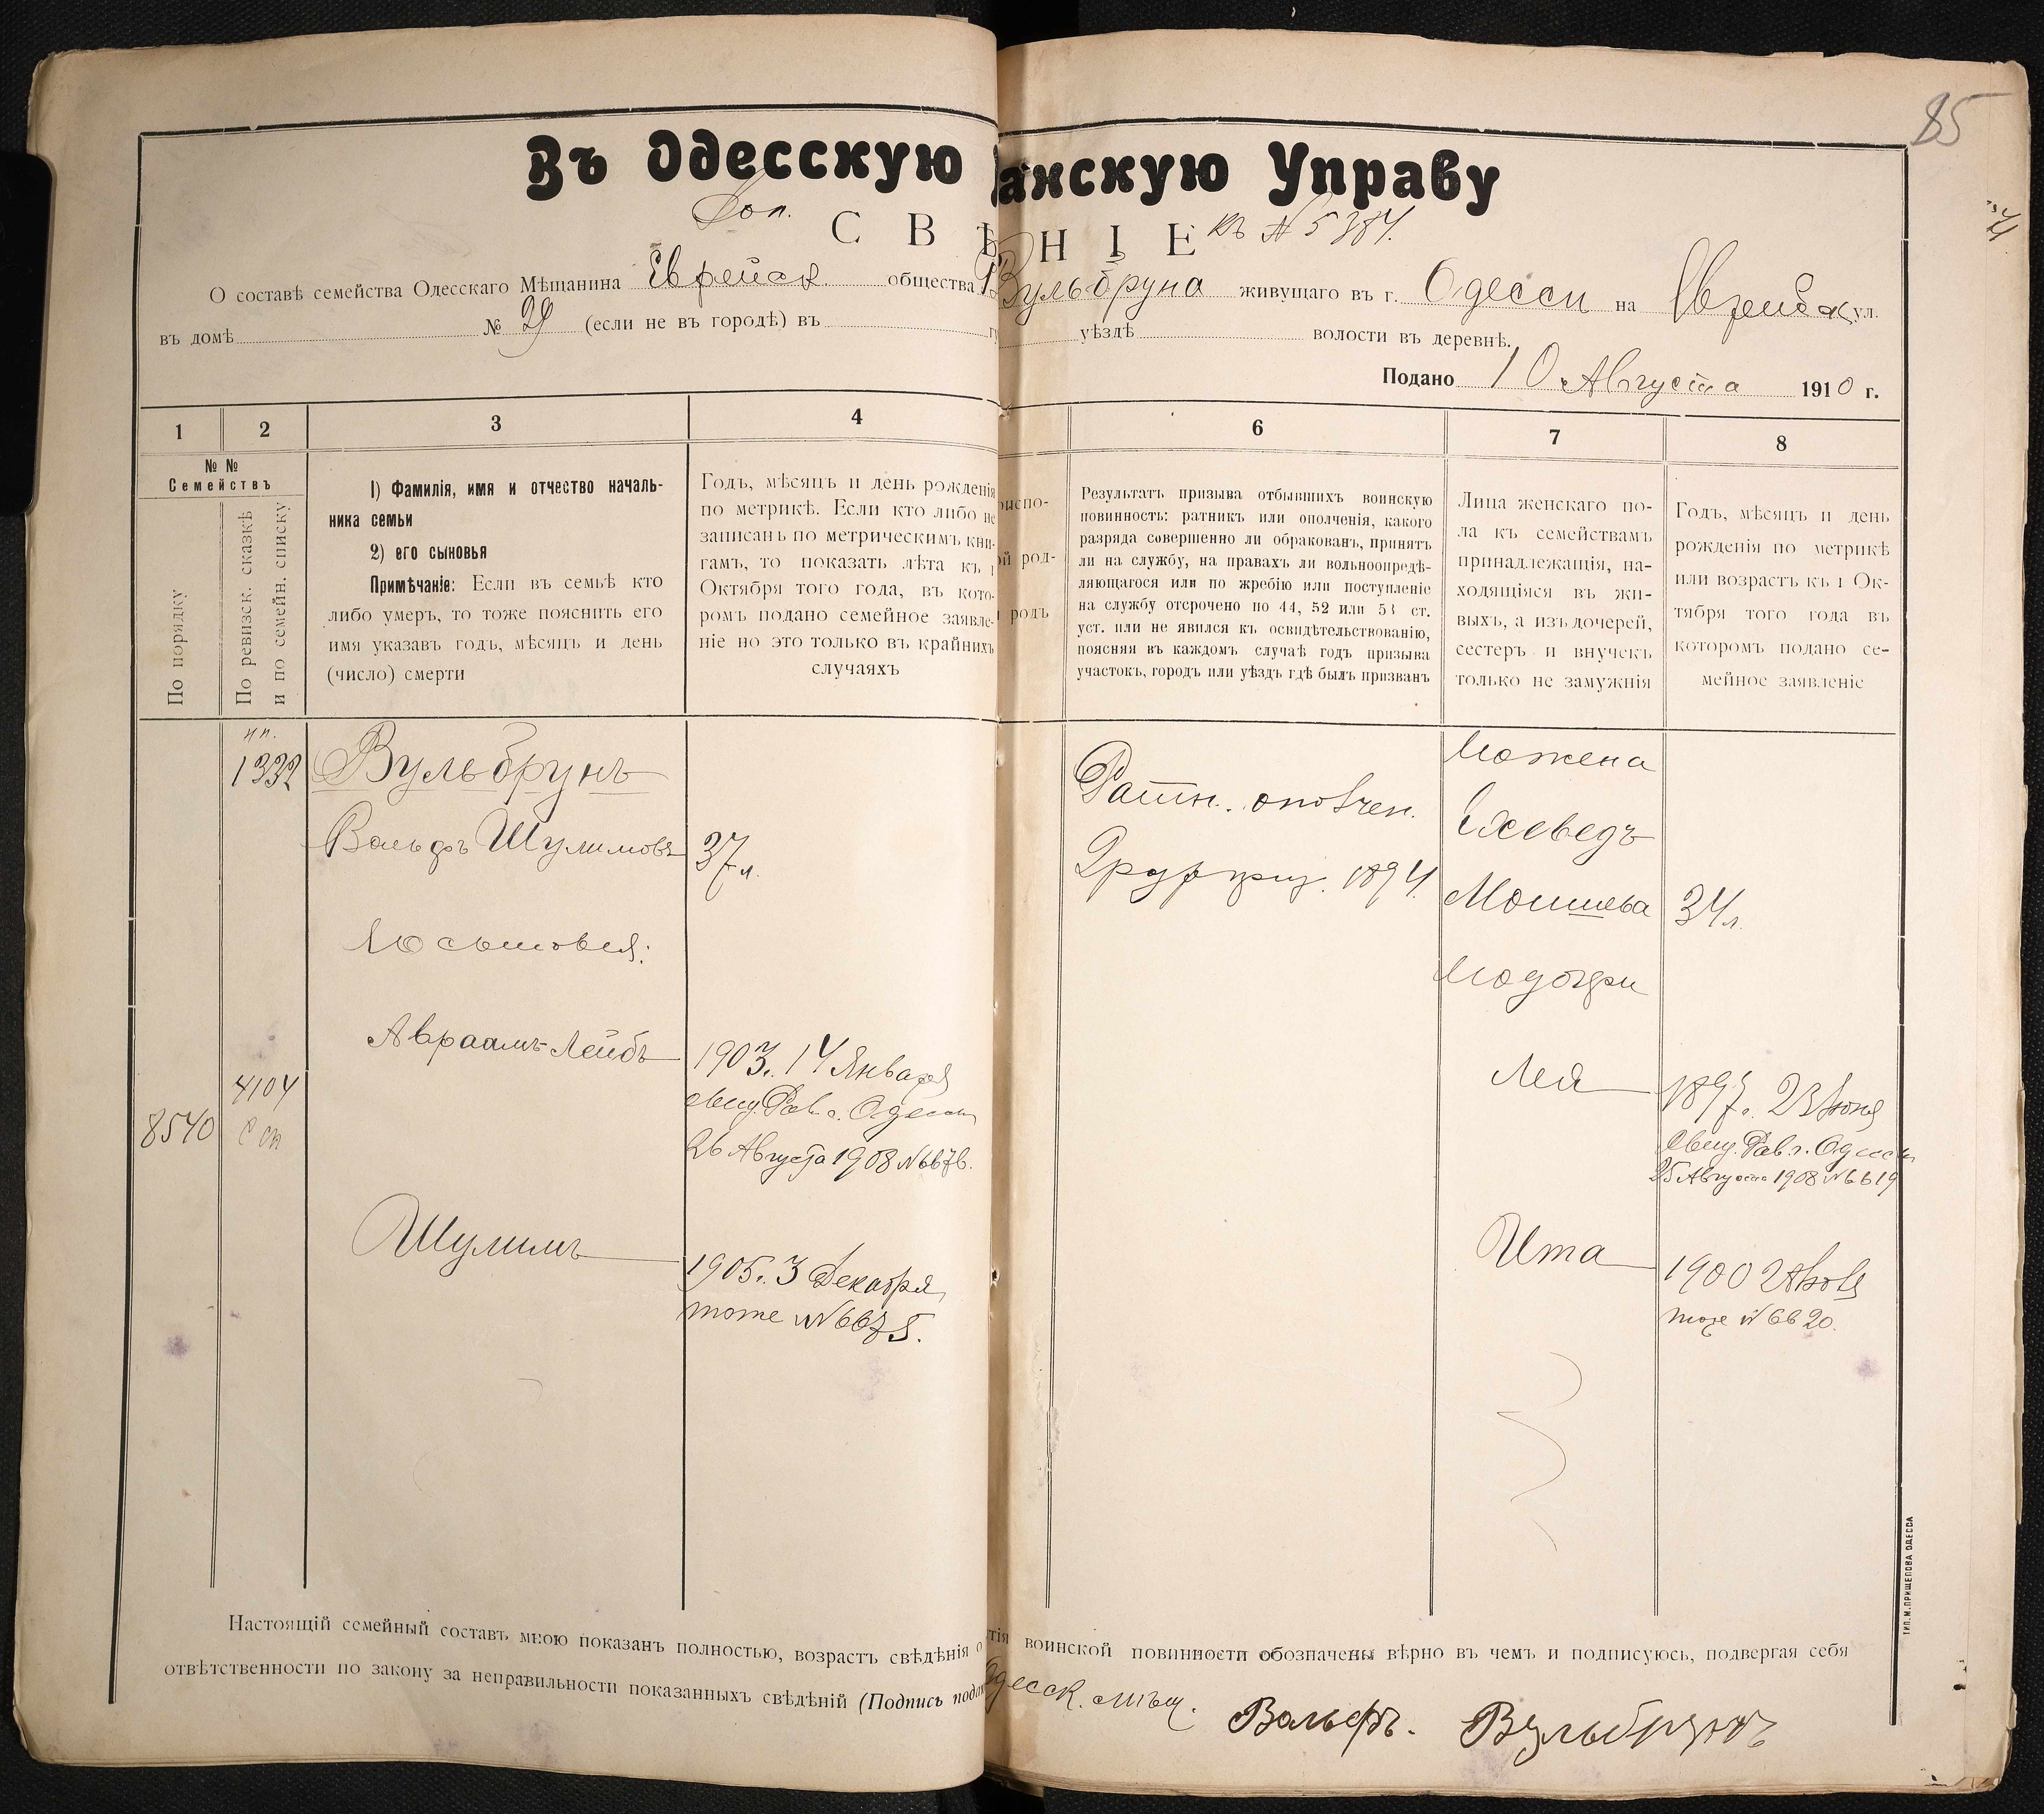 85
Въ Одесскую
анскую Управу
Доп.
къ № 5384.
С В Ѣ
Н І Е
О составѣ семейства Одесскаго Мѣщанина Еврейск. общества
Вульбруна живущаго въ г. Одессы на Еврейск ул.
въ домѣ № 29 (если не въ городѣ) въ
уѣздѣ волости въ деревнѣ.
Подано 10 Августа 1910 г.
1 2 3 4
6 7 8
№ №
Семействъ
По порядку
По ревизск. сказкѣ
и по семейн. списку
1) Фамилія, имя и отчество началь-
ника семьи
2) его сыновья
Примѣчаніе: Если въ семьѣ кто
либо умеръ, то тоже пояснить его
имя указавъ годъ, мѣсяцъ и день
(число) смерти
Годъ, мѣсяцъ и день рожденія
по метрикѣ. Если кто либо не
записанъ по метрическимъ кни-
гамъ, то показать лѣта къ 1
Октября того года, въ кото-
ромъ подано семейное заявле-
ніе но это только въ крайнихъ
случаяхъ
риспо-
ой род-
родъ
Результатъ призыва отбывшихъ воинскую
повинность: ратникъ или ополченія, какого
разряда совершенно ли обракованъ, принятъ
ли на службу, на правахъ ли вольноопредѣ-
ляющагося или по жребію или поступленіе
на службу отсрочено по 44, 52 или 53 ст.
уст. или не явился къ освидѣтельствованію,
поясняя въ каждомъ случаѣ годъ призыва
участокъ, городъ или уѣздъ гдѣ былъ призванъ
Лица женскаго по-
ла къ семействамъ
принадлежащія, на-
ходящіяся въ жи-
выхъ, а изъ дочерей,
сестеръ и внучекъ
только не замужнія
Годъ, мѣсяцъ и день
рожденія по метрикѣ
или возрастъ къ 1 Ок-
тября того года въ
которомъ подано се-
мейное заявленіе
1332 Вульбрунъ
Вольфъ Шулимовъ 37 л.
Ратн. ополчен.
2 раз. приз. 1894.
Его жена
Ехеведъ
Моишева 34 л.
Его сыновья:
Его дочери
8540
4104
Авраамъ-Лейбъ 1903 г. 14 Января
свид. Рав. г. Одессы
26 Августа 1908 № 6676.
Лея 1897 г. 23 Іюня
свид. Рав. г. Одессы
25 Августа 1908 № 6619
Шулимъ 1905 г. 3 Декабря
тоже № 6675.
Ита 1900
тоже № 6620.
Настоящій семейный составъ мною показанъ полностью, возрастъ свѣдѣнія о
тія воинской повинности обозначены вѣрно въ чемъ и подписуюсь, подвергая себя
отвѣтственности по закону за неправильности показанныхъ свѣдѣній (Подпись
Одесск. мѣщ. Вольфъ. Вульбрунъ
ТИП. М. ПРИЩЕПОВА ОДЕССА